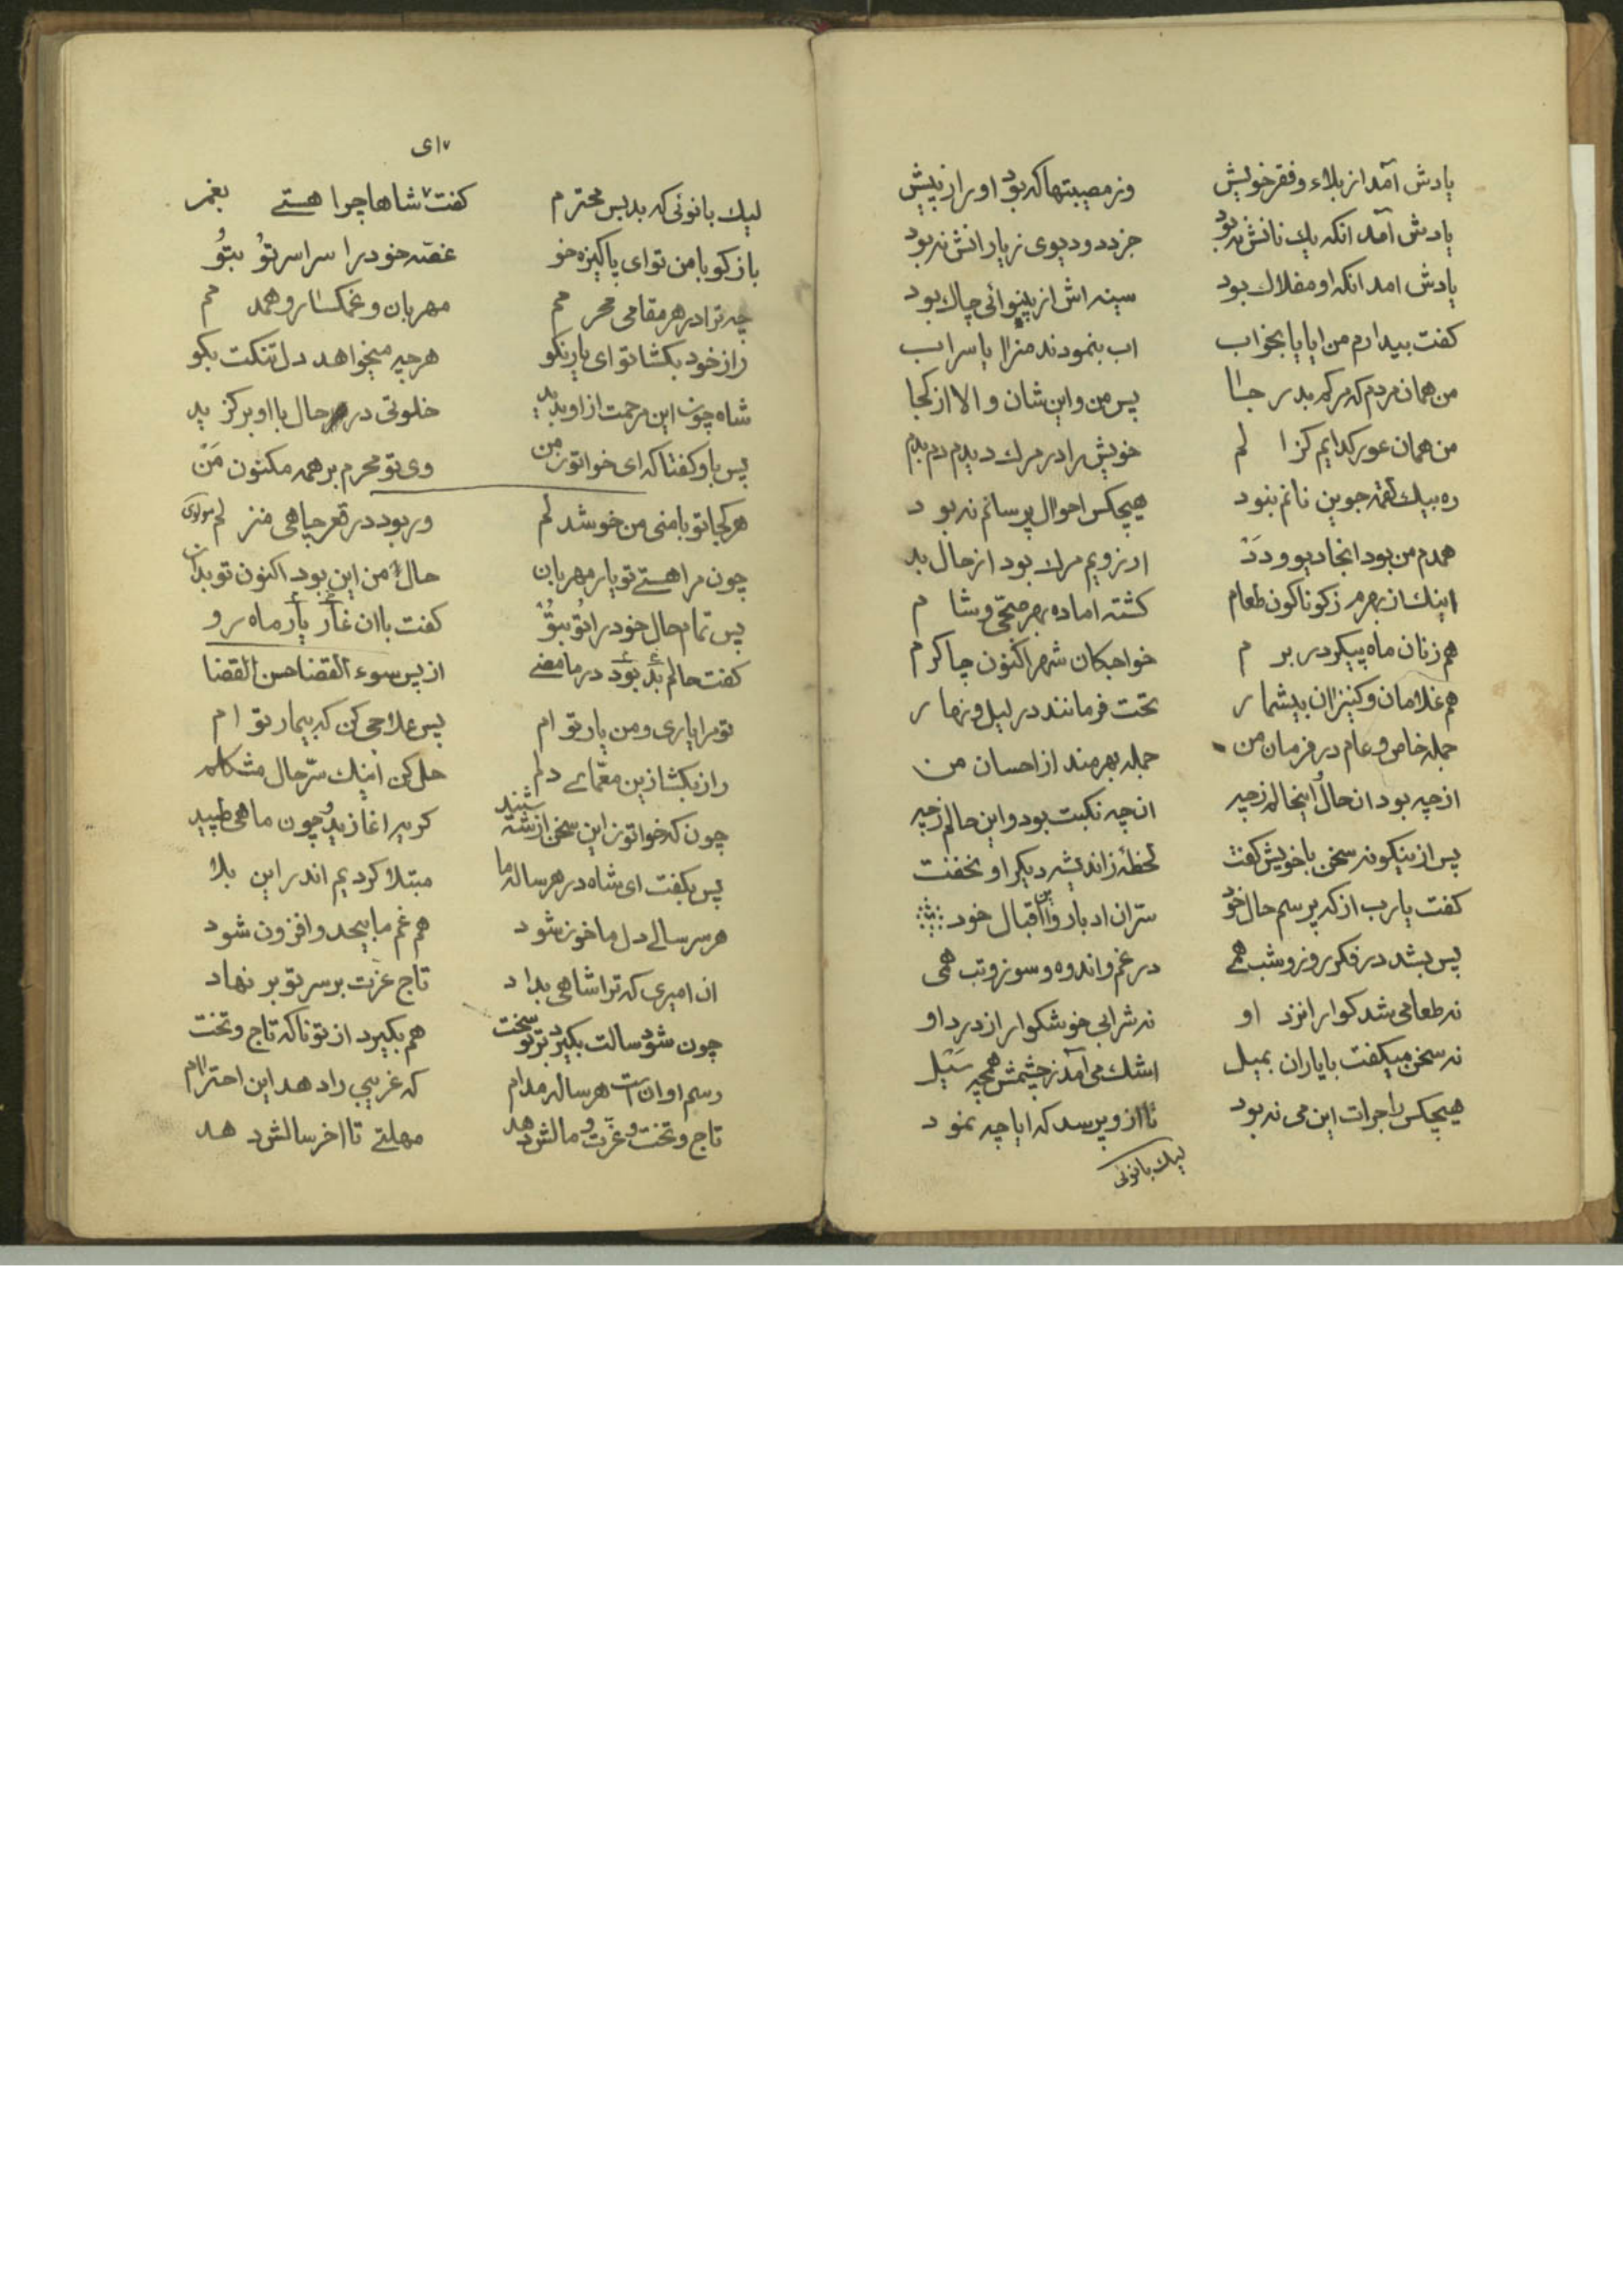 یادش آمد از بلاء و فقر خویش وز مصیبتها که بود او را ز پیش
یادش آمد انکه یك نانش نه بود جز دد و دیوی ز یارانش نه بود
یادش امد انکه او مفلاك بود سینه اش از بینوائی چاك بود
کفت بیدارم من ایا یا بخواب اب بنمودند مرا یا سراب
من همان مردم که مرکم بد رجا پس من و این شان و الا از کجا
من همان عور کدایم کز ا لم خویش را در مرك دیدم دم بدم
ره بیك لقمه جوین نانم نبود هیچکس احوال پرسانم نه بود
همدم من بود انجا دیو و دد ارزویم مرك بود از حال بد
اینك از بهرم ز کوناکون طعام کشته اماده بهر صبحی و شام
هم زنان ماه پیکر در برم خواجکان شهر اکنون چاکرم
هم غلامان و کنیزان بیشمار تحت فرمانند در لیل و نهار
جمله خاص و عام در فرمان من جمله بهرمند از احسان من
از چه بود ان حال و اینحالم ز چیه ان چه نکبت بود و این حالم ز چیه
پس از ینکونه سخن با خویش کفت لحظهٔ ز اندیشه دیکر او نخفت
کفت یارب از که پرسم حال خود سرّ ان ادبار و این اقبال خود
پس بشد در فکر روز و شب همی در غم و اندوه و سوز و تب همی
نه طعامی شد کوارا نزد او نه شرابی خوشکوار از درد او
نه سخن میکفت با یاران بمیل اشك می آمد ز چشمش همچه سَیل
هیچکس را جرات این می نه بود تا از و پرسد که ایا چه نمود
لیك بانوئی
۷ ای
لیك بانوئی که بد بس محترم کفت ۷ شاها چرا هستی بغم
باز کو با من تو ای پاکیزه خو غصّه خود را سراسر تو بتو
چه ترا در هر مقامی محرمم مهربان و غمکسار و همدمم
راز خود بکشا تو ای یار نکو هر چیه میخواهد دل تنکت بکو
شاه چون این مرحمت از او بدید خلوتی در هر حال با او برکزید
پس باو کفتا که ای خواتون من وی تو محرم بر همه مکنون من
هر کجا تو با منی من خوشدلم ور بود در قعر چاهی منزلم مولوی
چون مرا هستی تو یار مهربان حال من این بود اکنون تو بدان
پس تمام حال خود را تو بتو کفت با ان غار یار ماه رو
کفت حالم بد بود در ما مضی از پس سوء القضا حسن القضا
تو مرا یاری و من یار تو ام پس علاجی کن که بیمار تو ام
راز بکشا زین معمّای دلم حل کن اینك سرّ حال مشکلم
چون که خواتون این سخن از شه شنید کریه اغازید و چون ماهی طپید
پس بکفت ای شاه در هر ساله ما مبتلا کردیم اندر این بلا
هر سر سالی دل ما خون شود هم غم ما بیحد و افزون شود
ان امیری که ترا شاهی بداد تاج عزت بر سر تو بر نهاد
چون شود سالت بکیرد بر تو سخت هم بکیرد از تو ناکه تاج و تخت
رسم او انست هر ساله مدام که غریبی را دهد این احترام
تاج و تخت و عزّت و مالش دهد مهلتی تا اخر سالش دهد